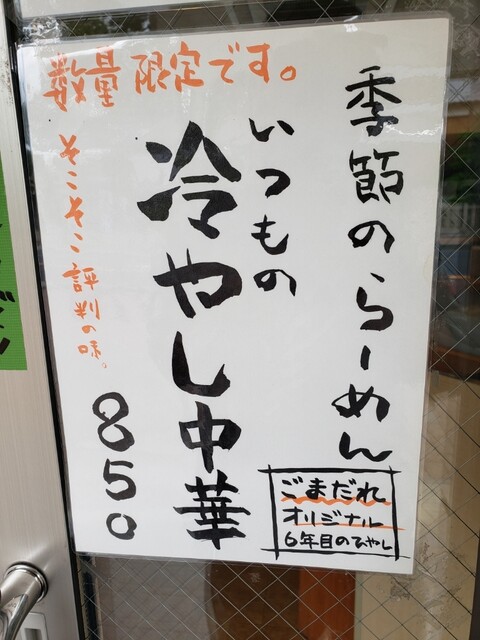 季節のらーめん
いつもの
冷やし中華
850
数量限定です。
そこそこ評判の味。
ごまだれ
オリジナル
6年目のひやし